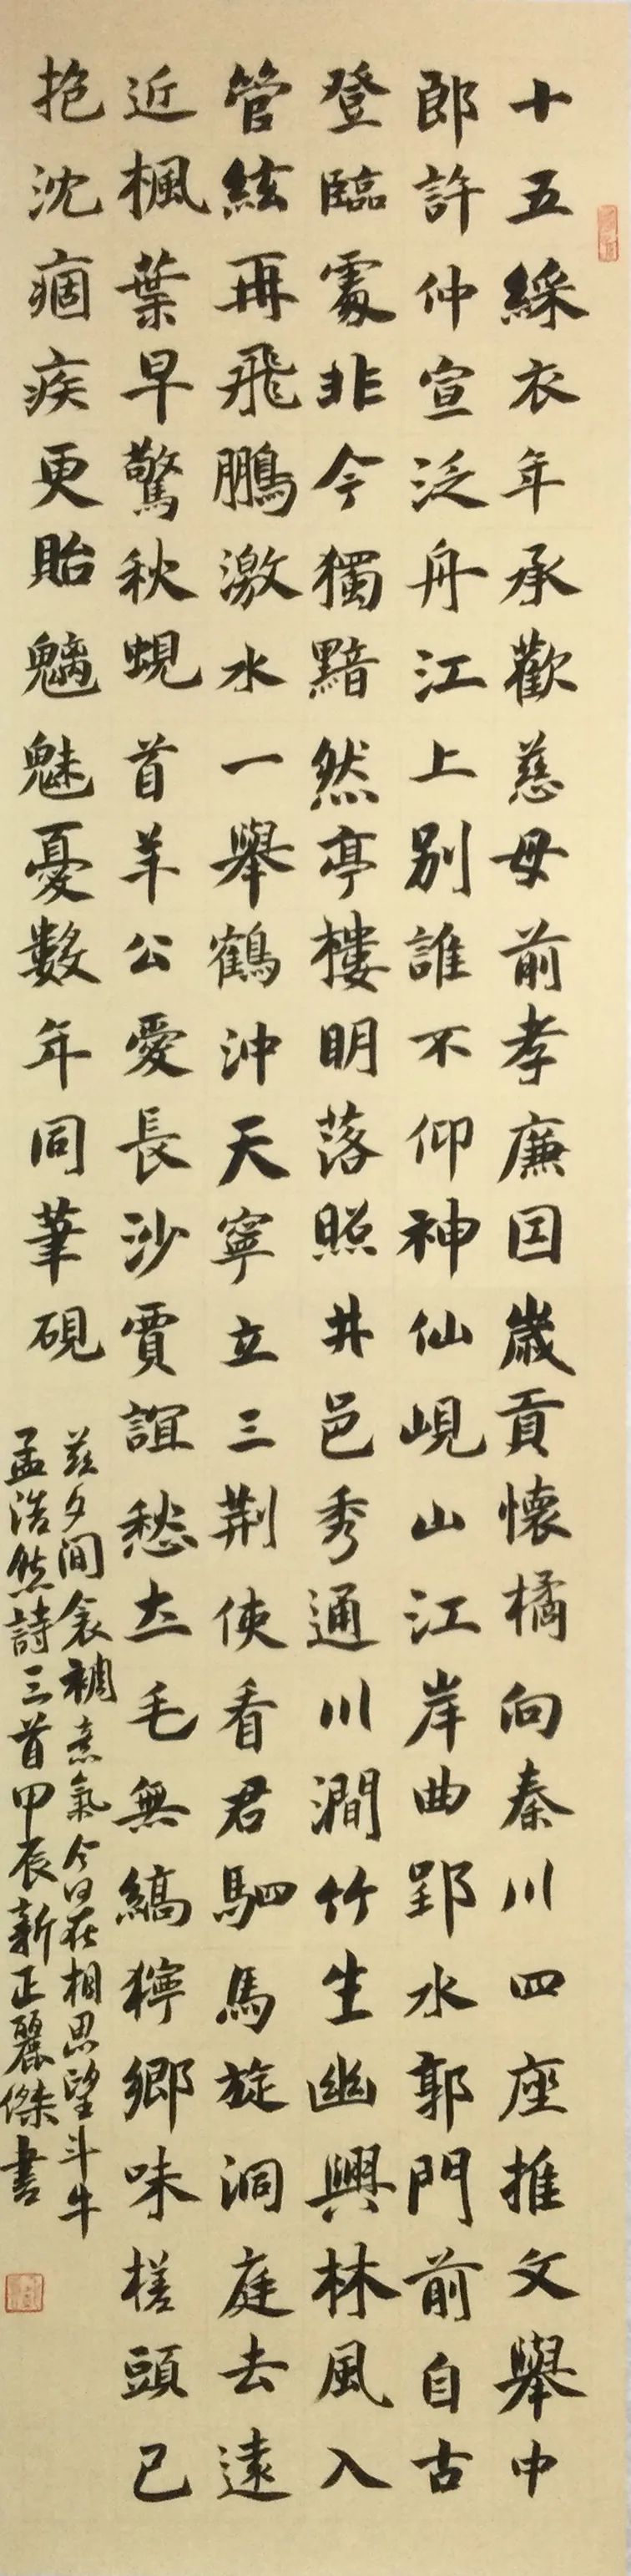 十五綵衣年承歡慈母前孝廉因歲貢懷橘向秦川四座推文舉中
郎許仲宣泛舟江上別誰不仰神仙峴山江岸曲郢水郭門前自古
登臨處非今獨黯然亭樓明落照井邑秀通川澗竹生幽興林風入
管絃再飛鵬激水一舉鶴沖天寧立三荆使看君駟馬旋洞庭去遠
近楓葉早驚秋峴首羊公愛長沙賈誼愁土毛無縞紵鄉味槎頭已
抱沈痼疾更貽魑魅憂數年同筆硯
茲夕間衾裯意氣今何在相思望斗牛
孟浩然詩三首甲辰新正麗傑書